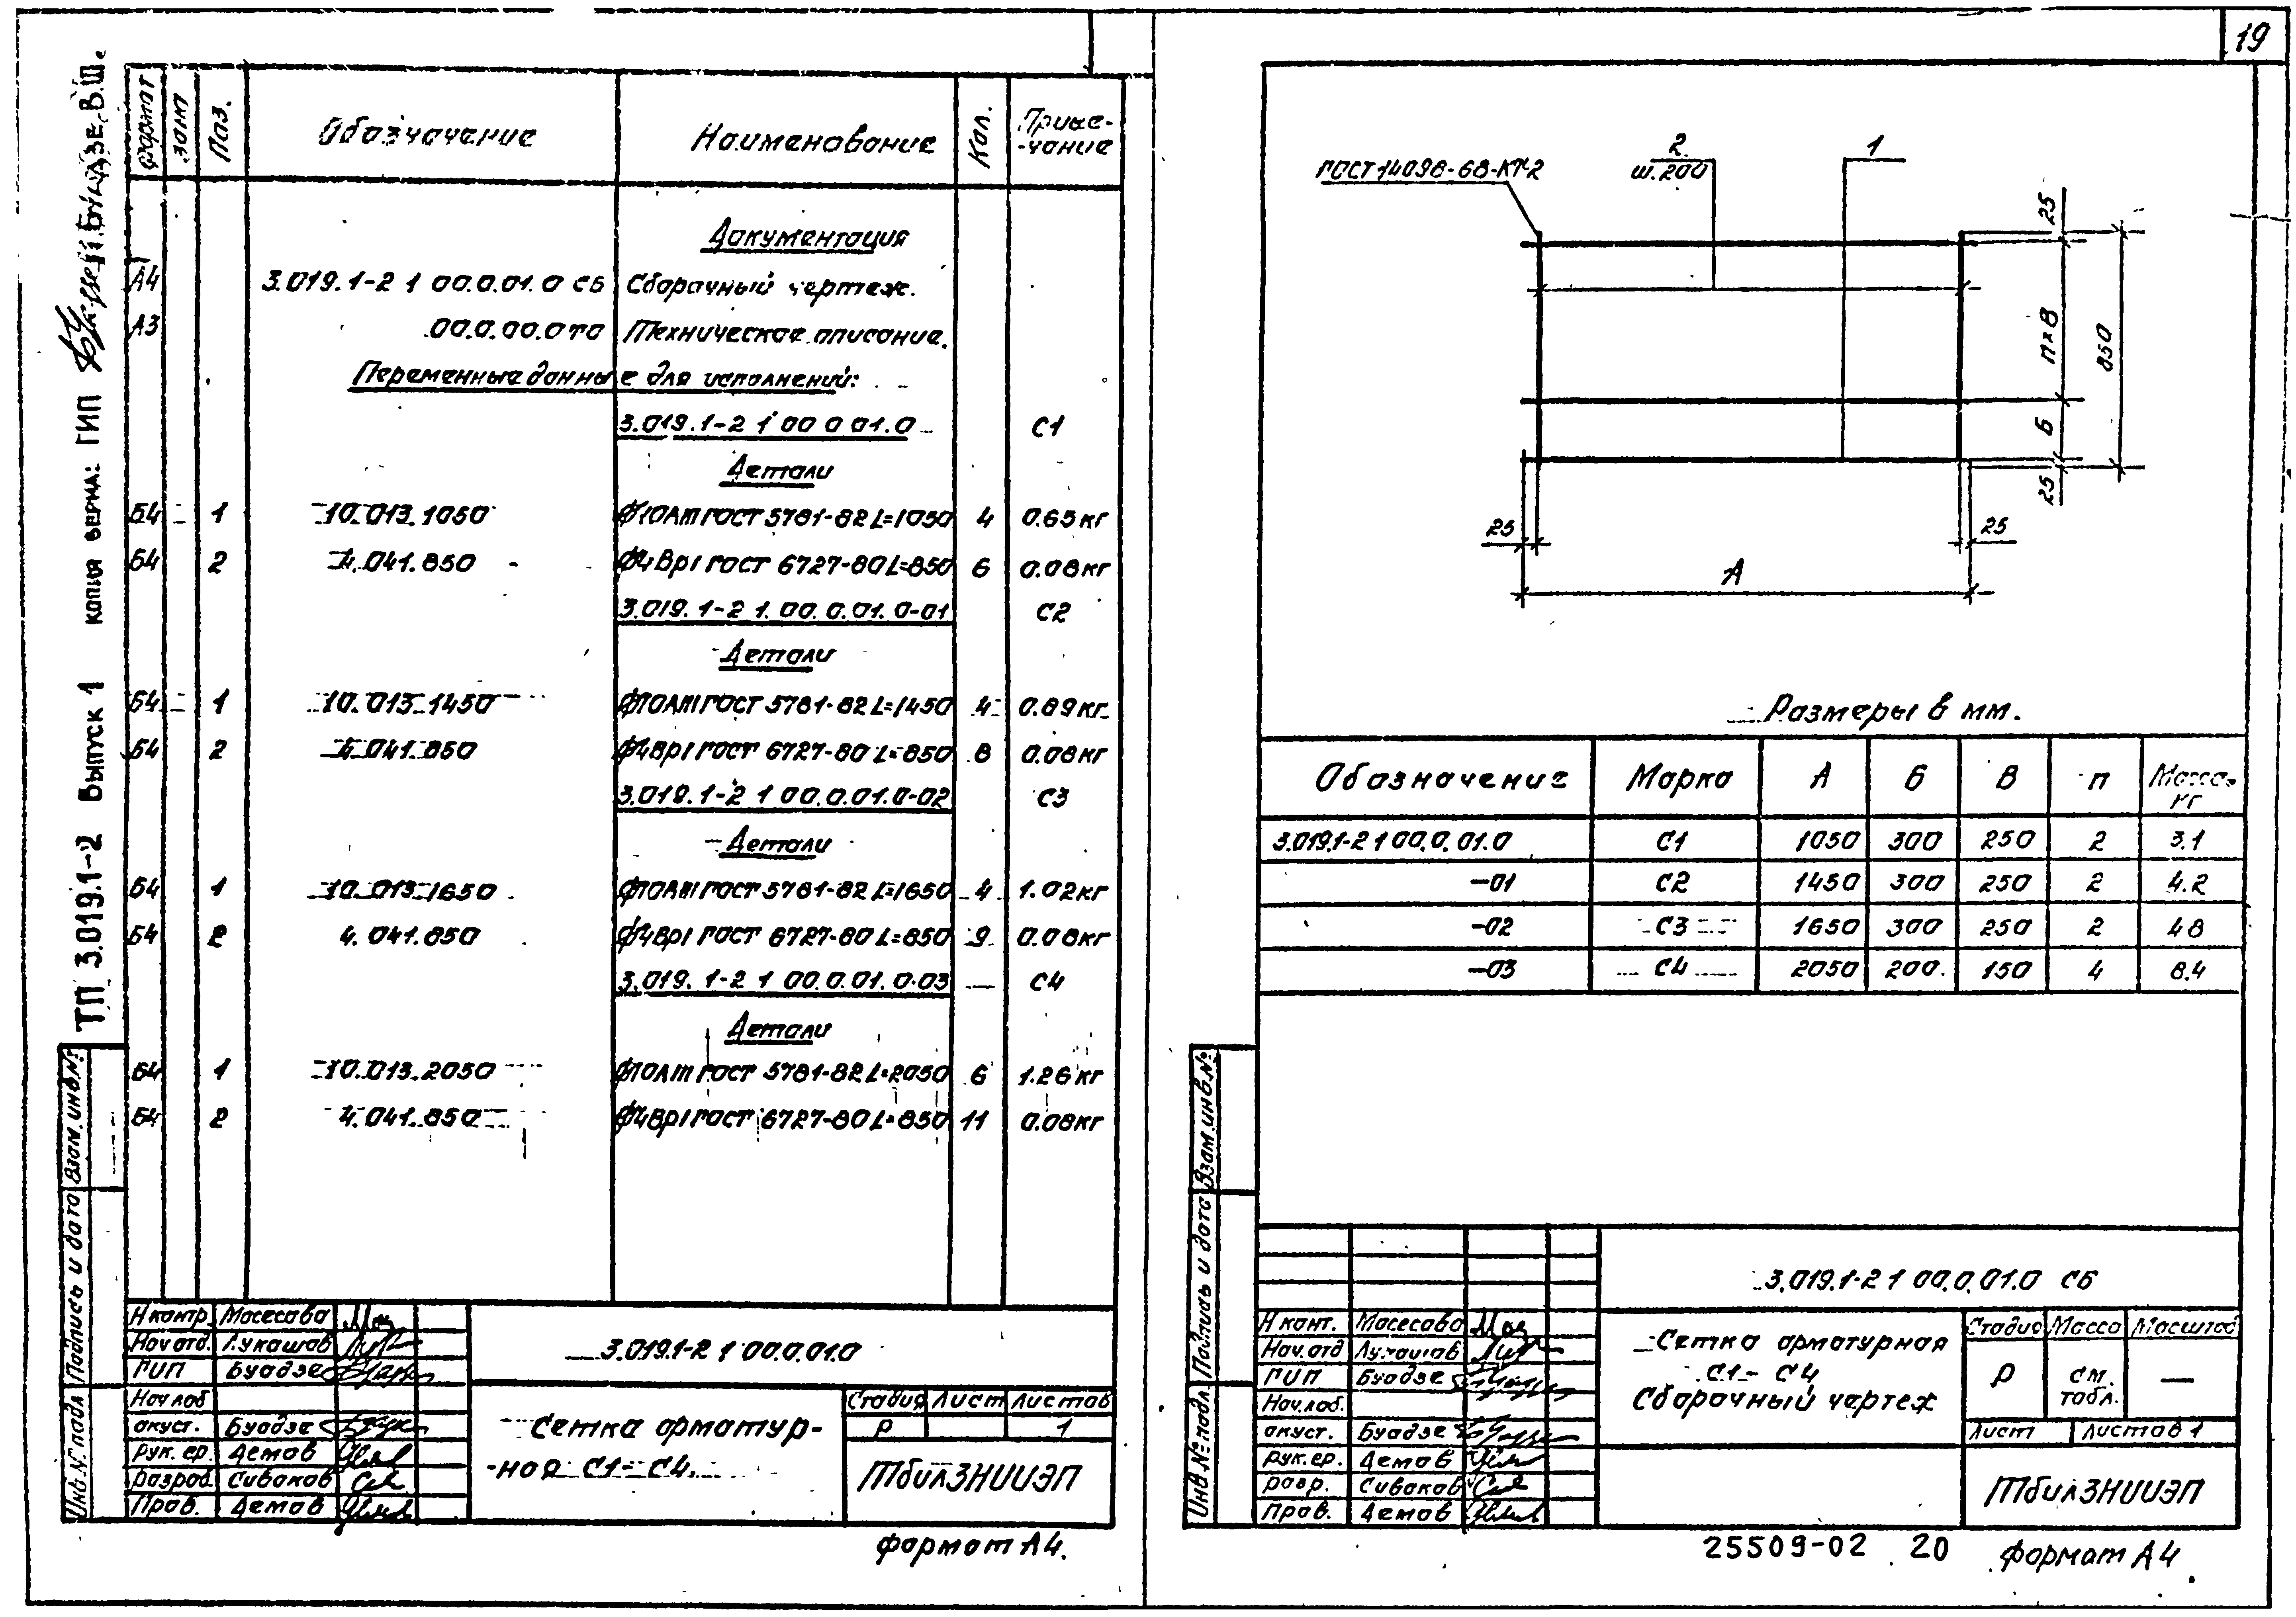 19
ТП 3.019.1-2 Выпуск 1 копия верна: ГИП БУАДЗЕ В.Ш.
Формат Зона Поз. Обозначение Наименование Кол. Приме-
-чание
Документация
А4 3.019.1-2 1 00.0.01.0 СБ Сборочный чертеж.
А3 00.0.00.0 ТО Техническое описание.
Переменные данные для исполнений:
3.019.1-2 1 00 0 01.0 С1
Детали
Б4 1 10.013.1050 Ф10АIII ГОСТ 5781-82 L=1050 4 0.65кг
Б4 2 4.041.850 Ф4ВрI ГОСТ 6727-80 L=850 6 0.08кг
3.019.1-2 1.00.0.01.0-01 С2
Детали
Б4 1 10.013.1450 Ф10АIII ГОСТ 5781-82 L=1450 4 0.89кг
Б4 2 4.041.850 Ф4ВрI ГОСТ 6727-80 L=850 8 0.08кг
3.019.1-2 1 00.0.01.0-02 С3
Детали
Б4 1 10.013.1650 Ф10АIII ГОСТ 5781-82 L=1650 4 1.02кг
Б4 2 4.041.850 Ф4ВрI ГОСТ 6727-80 L=850 9 0.08кг
3.019.1-2 1 00.0.01.0-03 — С4
Детали
Б4 1 10.013.2050 Ф10АIII ГОСТ 5781-82 L=2050 6 1.26кг
Б4 2 4.041.850 Ф4ВрI ГОСТ 6727-80 L=850 11 0.08кг
Инв.№ подл Подпись и дата Взам.инв.№
Н контр. Масесова
Нач отд. Лукашов
ГИП Буадзе
Нач лаб
акуст. Буадзе
рук. гр. Демов
разраб. Сиваков
Пров. Демов
3.019.1-2 1 00.0.01.0
Сетка арматур-
-ная С1-С4
Стадия Лист Листов
Р 1
ТбилЗНИИЭП
формат А4.
ГОСТ 14098-68-КТ-2
2
ш.200
1
25
п×В
Б
25
850
25
25
А
Размеры в мм.
Обозначение Марка А Б В п Масса,
кг
3.019.1-2 1 00.0.01.0 С1 1050 300 250 2 3.1
-01 С2 1450 300 250 2 4.2
-02 С3 1650 300 250 2 4.8
-03 С4 2050 200 150 4 8.4
Инв.№ подл. Подпись и дата Взам.инв.№
3.019.1-2 1 00.0.01.0 СБ
Н конт. Масесова
Нач.отд Лукашов
ГИП Буадзе
Нач.лаб.
акуст. Буадзе
рук.гр. Демов
разр. Сиваков
Пров. Демов
Сетка арматурная
С1 - С4
Сборочный чертеж
Стадия Масса Масштаб
Р см.
табл. —
Лист Листов 1
ТбилЗНИИЭП
25509-02 20
формат А4